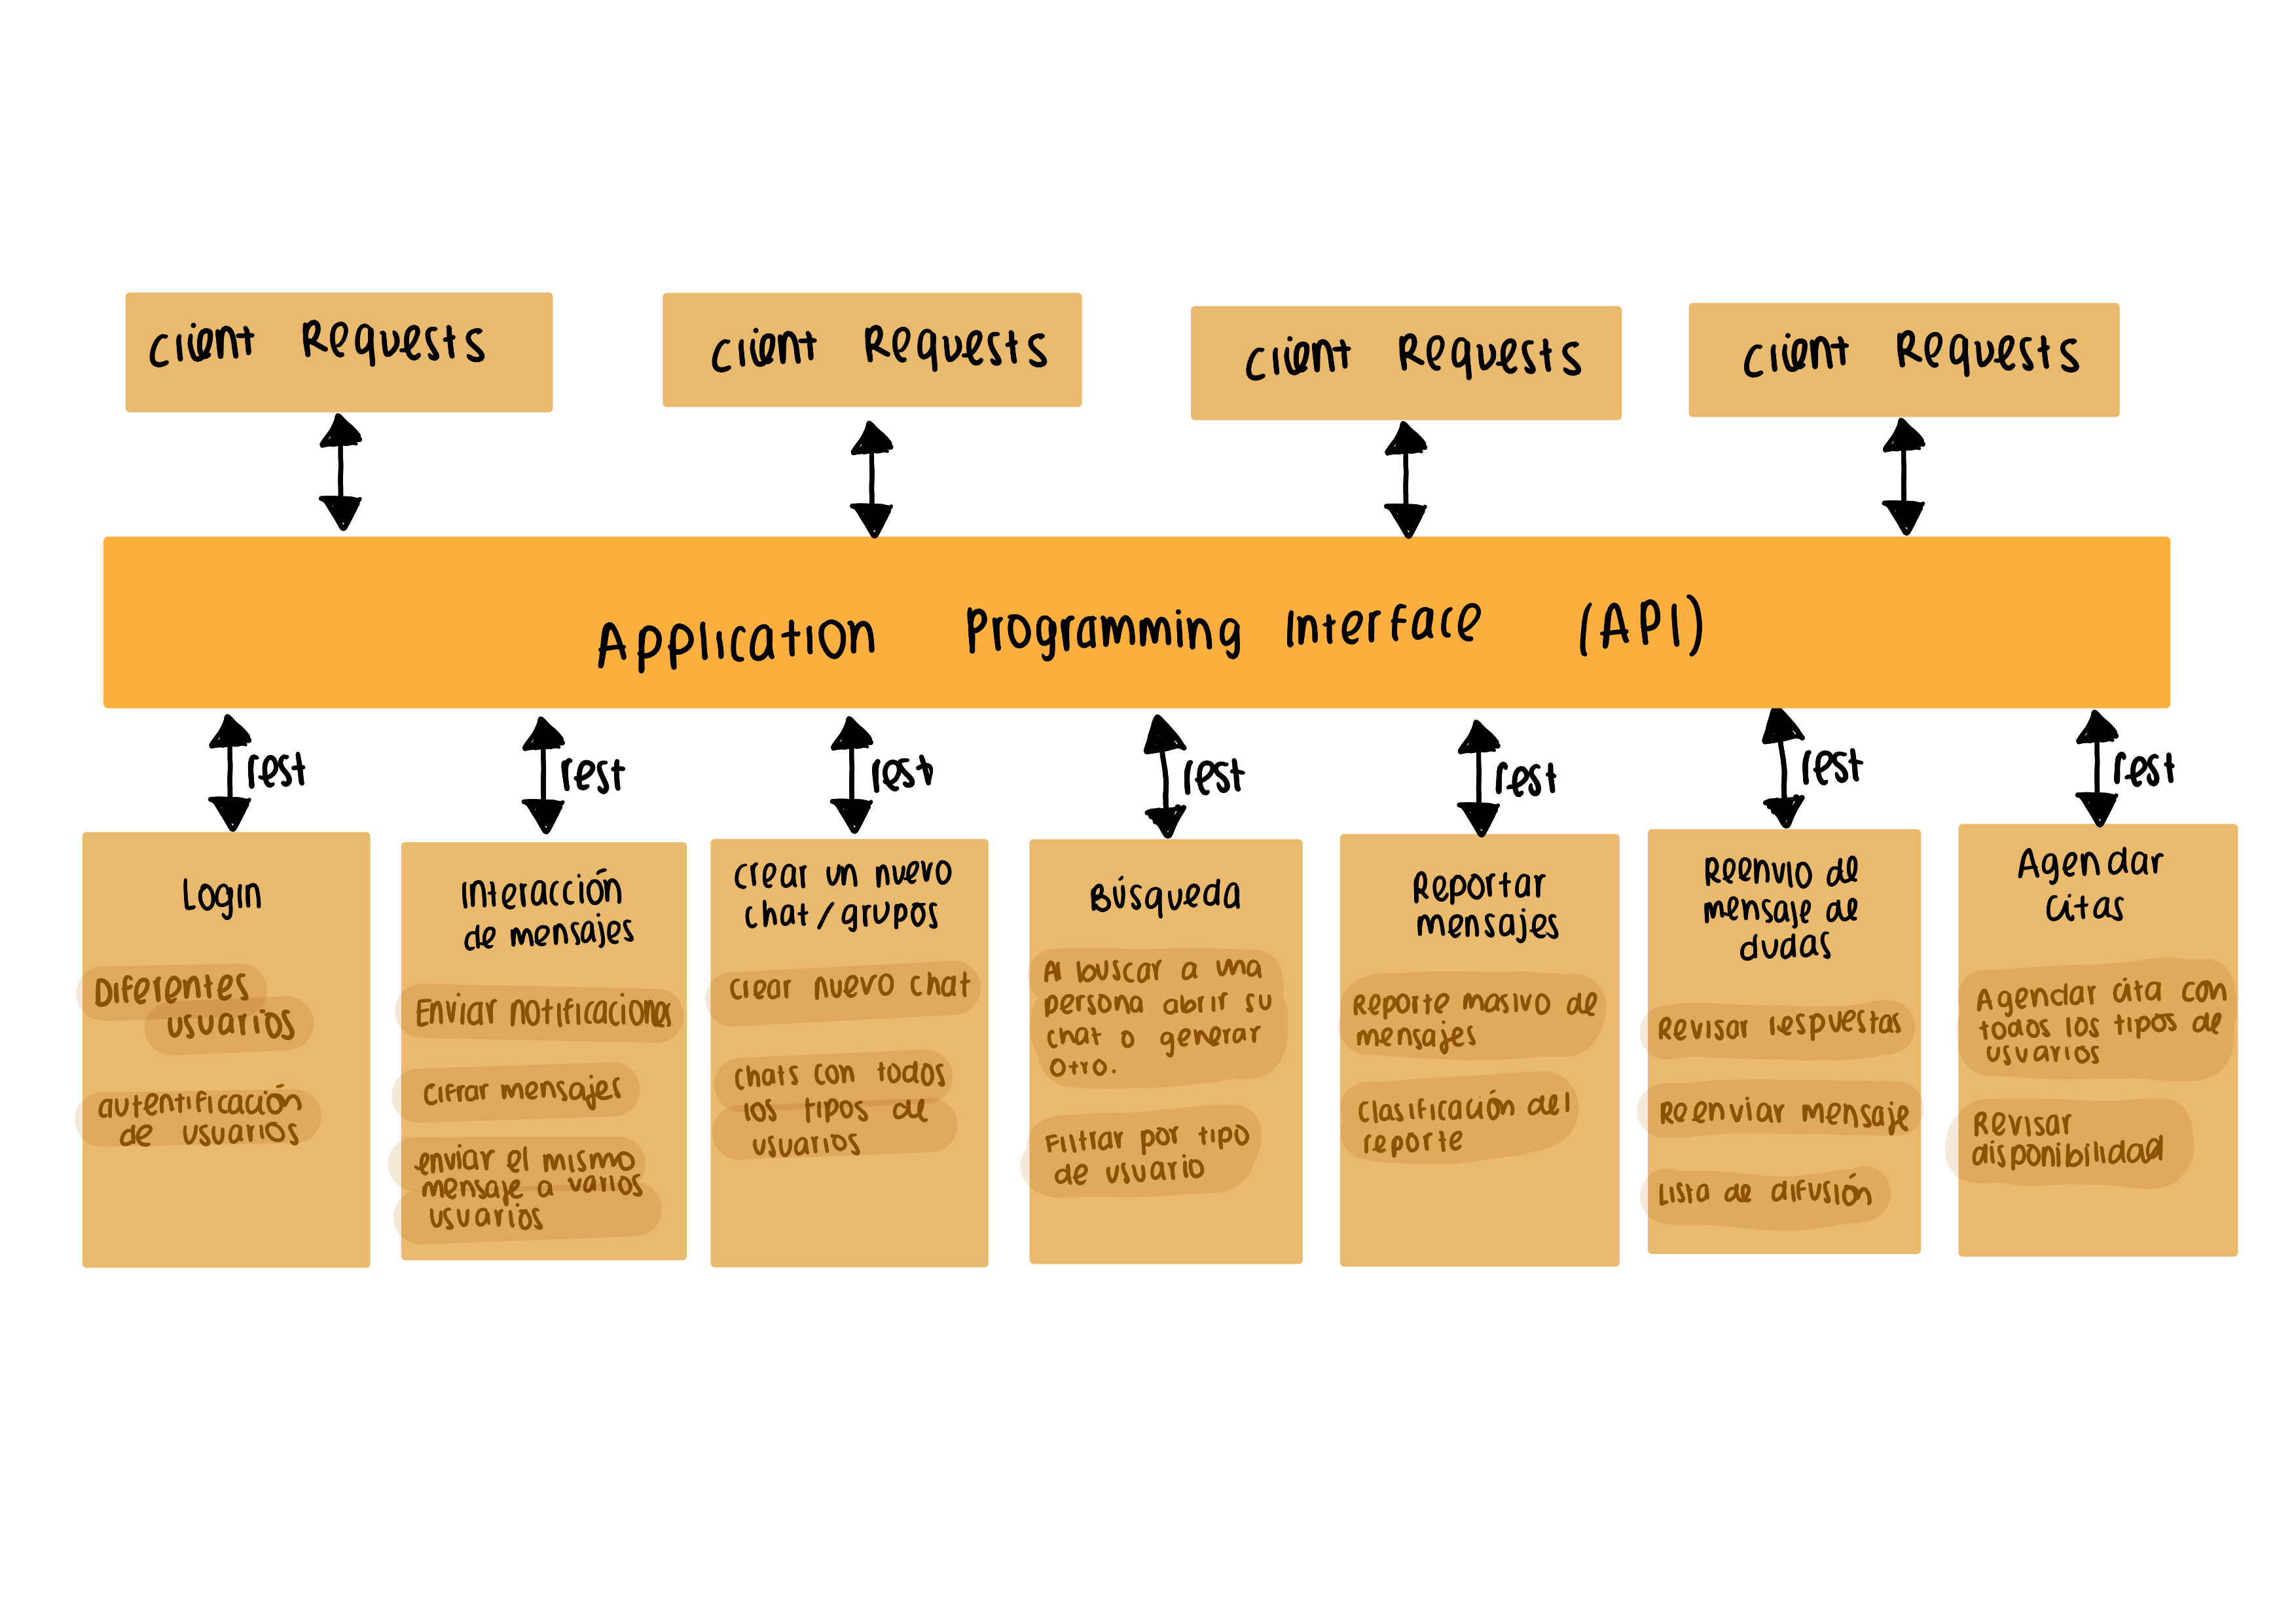 Client Requests
Client Requests
Client Requests
Client Requests
Application Programming Interface (API)
rest
rest
rest
rest
rest
rest
rest
Login
Diferentes
usuarios
autentificación
de usuarios
Interacción
de mensajes
Enviar notificaciones
Cifrar mensajes
enviar el mismo
mensaje a varios
usuarios
Crear un nuevo
chat/grupos
Crear nuevo chat
chats con todos
los tipos de
usuarios
Búsqueda
Al buscar a una
persona abrir su
chat o generar
otro.
Filtrar por tipo
de usuario
Reportar
mensajes
Reporte masivo de
mensajes
Clasificación del
reporte
Reenvio de
mensaje de
dudas
Revisar respuestas
Reenviar mensaje
Lista de difusión
Agendar
Citas
Agendar cita con
todos los tipos de
usuarios
Revisar
disponibilidad